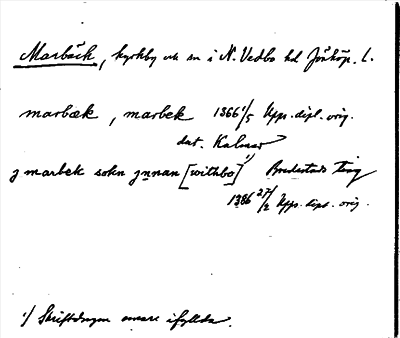 Marbäck, kyrkby och sn i N. Vedbo hd Jönköp. l.
marbæk, marbek 1366 1/5 Upps. dipl. orig.
dat. Kalmar
j marbek sokn jnnan [withbo] 1) Bredestads ting
1386 27/2 Upps. dipl. orig.
1) senare ifyllda.